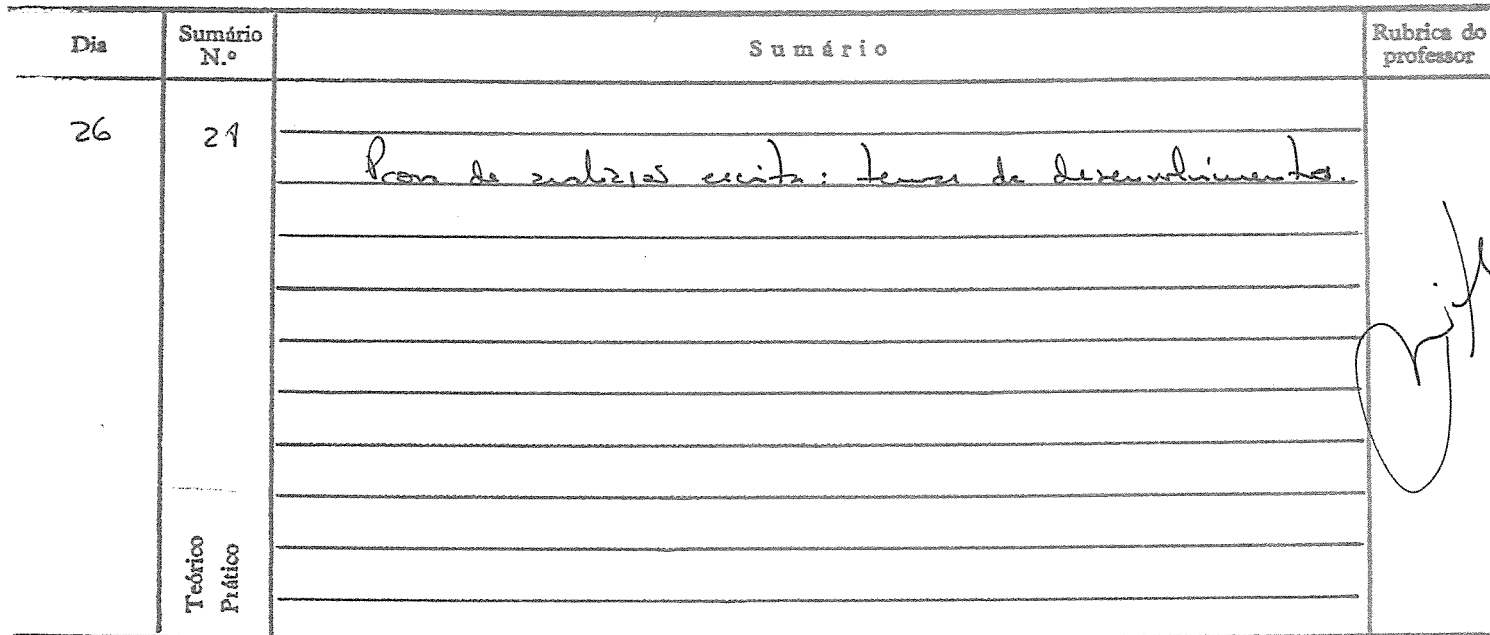 Dia
Sumário N.º
Sumário
Rubrica do professor
26
21
Prova de avaliação escrita: temas de desenvolvimento.
Teórico
Prático